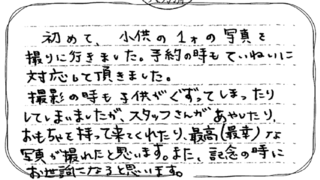 初めて、小供の1才の写真を
撮りに行きました。予約の時もていねいに
対応して頂きました。
撮影の時も子供がぐずってしまったり
してしまいましたが、スタッフさんがあやしたり、
おもちゃを持って来てくれたり、最高(最幸)な
写真が撮れたと思います。また、記念の時に
お世話になると思います。